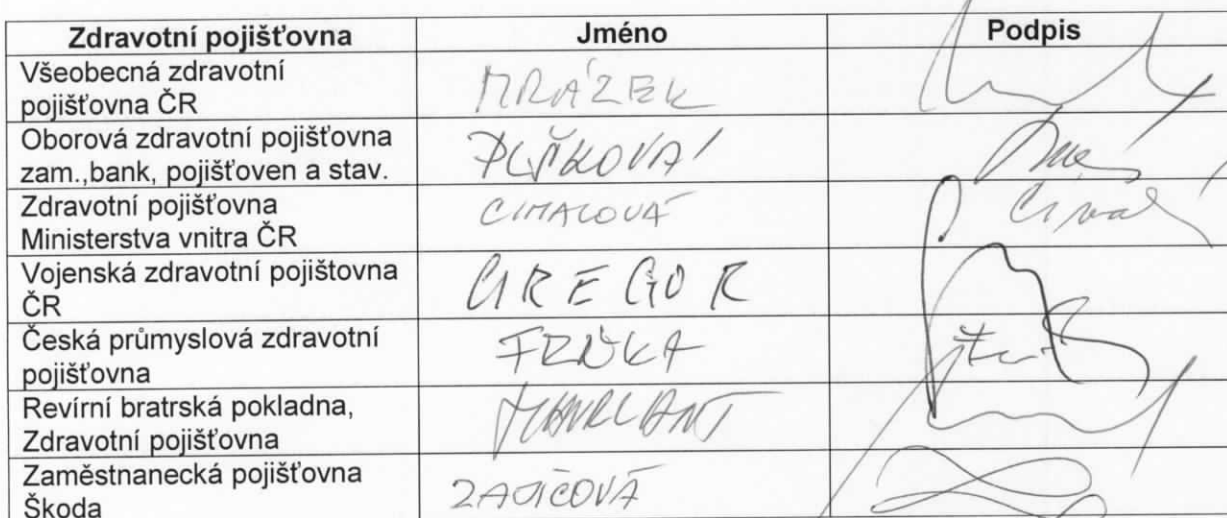 Zdravotní pojišťovna Jméno Podpis
Všeobecná zdravotní
pojišťovna ČR MRÁZEK
Oborová zdravotní pojišťovna
zam.,bank, pojišťoven a stav. PLÍŠKOVÁ
Zdravotní pojišťovna
Ministerstva vnitra ČR CIMALOVÁ
Vojenská zdravotní pojištovna
ČR GREGOR
Česká průmyslová zdravotní
pojišťovna
Revírní bratrská pokladna,
Zdravotní pojišťovna
Zaměstnanecká pojišťovna
Škoda ZAJÍČOVÁ